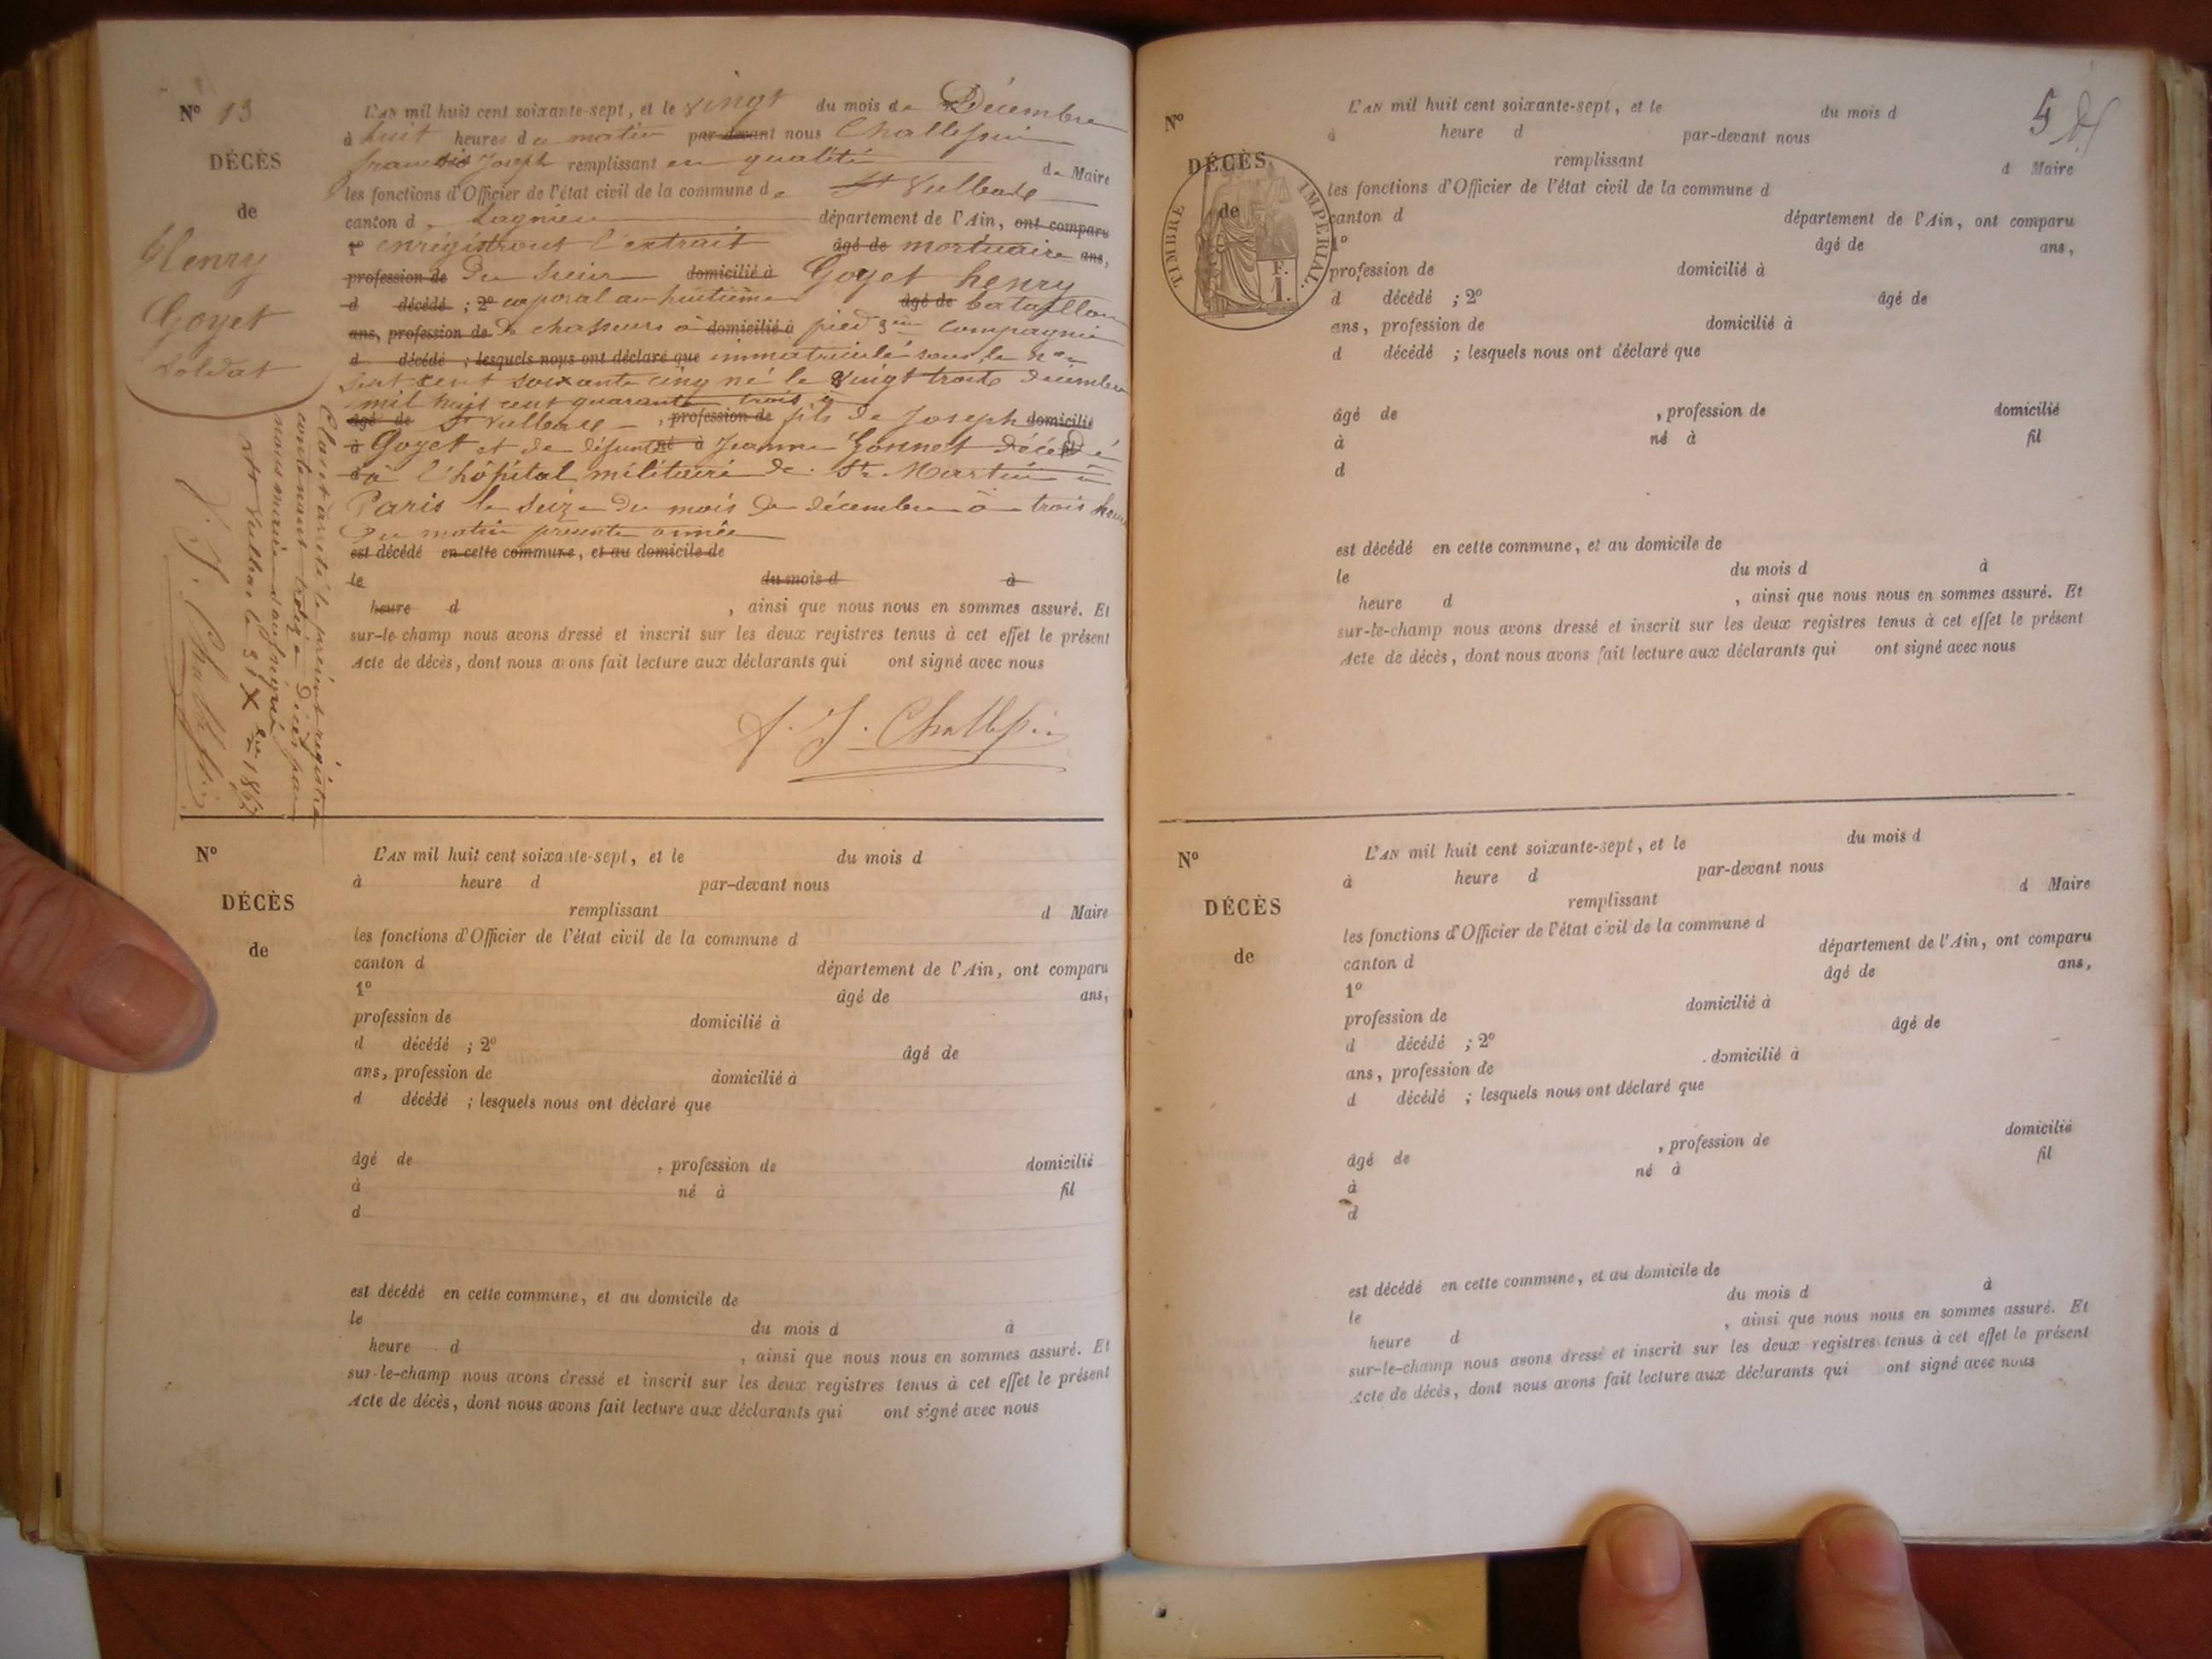 N° 13
DÉCÈS
de
Henry
Goyet
soldat
L'AN mil huit cent soixante-sept, et le vingt du mois de Décembre
à huit heures du matin par-devant nous Challessin
françois Joseph remplissant en qualité de Maire
les fonctions d'Officier de l'état civil de la commune de St Vulbade
canton d Lagnieu département de l'Ain, ont comparu
1° enregistrant l'extrait âgé de mortuaire ans,
profession de du Sieur domicilié à Goyet henry
d décédé ; 2° caporal au huitième âgé de bataillon
ans, profession de de chasseurs à domicilié à pied 3ème compagnie
d décédé ; lesquels nous ont déclaré que immatriculé sous le n°
sept cent soixante cinq né le vingt trois décembre
mil huit cent quarante trois à
âgé de St Vulbade , profession de fils de Joseph domicilié
à Goyet et de défunte né à Jeanne Gonnet décédé fil
d à l'hôpital militaire de St Martin à
Paris le seize du mois de décembre à trois heures
du matin présente année
est décédé en cette commune, et au domicile de
le du mois d à
heure d , ainsi que nous nous en sommes assuré. Et
sur-le-champ nous avons dressé et inscrit sur les deux registres tenus à cet effet le présent
Acte de décès, dont nous avons fait lecture aux déclarants qui ont signé avec nous
f. J. Challessin
Clos et arrêté le présent registre
contenant treize Décès par
nous maire soussigné
St Vulbade le 31 Xbre 1867
f. J. Challessin
N°
DÉCÈS
de
L'AN mil huit cent soixante-sept, et le du mois d
à heure d par-devant nous
remplissant d Maire
les fonctions d'Officier de l'état civil de la commune d
canton d département de l'Ain, ont comparu
1° âgé de ans,
profession de domicilié à
d décédé ; 2° âgé de
ans, profession de domicilié à
d décédé ; lesquels nous ont déclaré que
âgé de , profession de domicilié
à né à fil
d
est décédé en cette commune, et au domicile de
le du mois d à
heure d , ainsi que nous nous en sommes assuré. Et
sur-le-champ nous avons dressé et inscrit sur les deux registres tenus à cet effet le présent
Acte de décès, dont nous avons fait lecture aux déclarants qui ont signé avec nous
5
N°
DÉCÈS
de
TIMBRE IMPÉRIAL.
F.
1.
L'AN mil huit cent soixante-sept, et le du mois d
à heure d par-devant nous
remplissant d Maire
les fonctions d'Officier de l'état civil de la commune d
canton d département de l'Ain, ont comparu
1° âgé de ans,
profession de domicilié à
d décédé ; 2° âgé de
ans, profession de domicilié à
d décédé ; lesquels nous ont déclaré que
âgé de , profession de domicilié
à né à fil
d
est décédé en cette commune, et au domicile de
le du mois d à
heure d , ainsi que nous nous en sommes assuré. Et
sur-le-champ nous avons dressé et inscrit sur les deux registres tenus à cet effet le présent
Acte de décès, dont nous avons fait lecture aux déclarants qui ont signé avec nous
N°
DÉCÈS
de
L'AN mil huit cent soixante-sept, et le du mois d
à heure d par-devant nous
remplissant d Maire
les fonctions d'Officier de l'état civil de la commune d
canton d département de l'Ain, ont comparu
1° âgé de ans,
profession de domicilié à
d décédé ; 2° âgé de
ans, profession de domicilié à
d décédé ; lesquels nous ont déclaré que
âgé de , profession de domicilié
à né à fil
d
est décédé en cette commune, et au domicile de
le du mois d à
heure d , ainsi que nous nous en sommes assuré. Et
sur-le-champ nous avons dressé et inscrit sur les deux registres tenus à cet effet le présent
Acte de décès, dont nous avons fait lecture aux déclarants qui ont signé avec nous